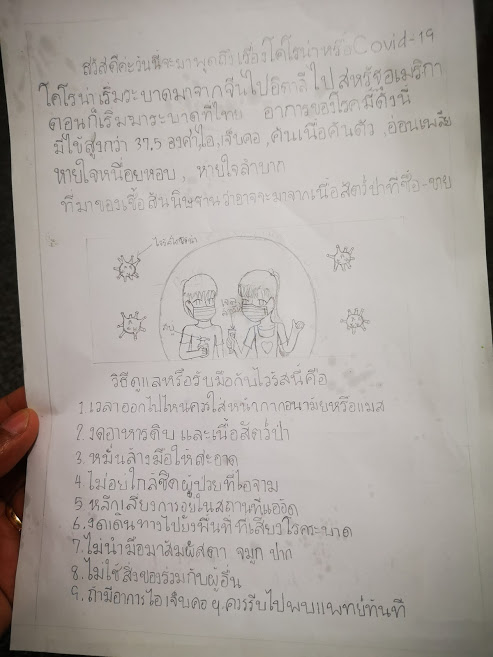 สวัสดีคะวันนี้จะมาพูดถึงเรื่องโคโรน่าหรือCovid-19
โคโรน่าเริ่มระบาดมาจากจีนไปอิตาลีไปสหรัฐอเมริกา
ตอนก็เริ่มมาระบาดที่ไทย อาการของโรคมีดังนี้
มีไข้สูงกว่า 37.5 องศา,ไอ,เจ็บคอ,คันเนื้อคันตัว,อ่อนเพลีย
หายใจหนื่อยหอบ, หายใจลำบาก
ที่มาของเชื้อสันนิษฐานว่าอาจจะมาจากเนื้อสัตว์ป่าที่ซื้อ-ขาย
วิธีดูแลหรือรับมือกับไวรัสนี้คือ
1.เวลาออกไปไหนควรใส่หน้ากากอนามัยหรือแมส
2.งดอาหารดิบ และเนื้อสัตว์ป่า
3.หมั่นล้างมือให้สะอาด
4.ไม่อยู่ใกล้ชิดผู้ป่วยที่ไอจาม
5.หลีกเลี่ยงการอยู่ในสถานที่แออัด
6.งดเดินทางไปยังพื้นที่ที่เสี่ยงโรคระบาด
7.ไม่นำมือมาสัมผัสตา จมูก ปาก
8.ไม่ใช้สิ่งของร่วมกับผู้อื่น
9.ถ้ามีอาการไอ เจ็บคอ ฯ ควรรีบไปพบแพทย์ทันที